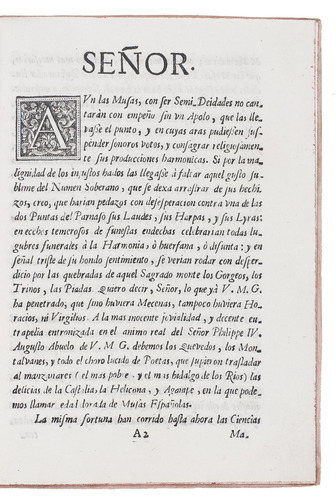 SEÑOR.
AVn las Musas, con ser Semi-Deidades no can-
tarán con empeño sin vn Apolo, que las lle-
vasse el punto, y en cuyas aras pudiessen sus-
pender sonoros votos, y consagrar religiosamen-
te sus producciones harmonicas. Si por la ma-
lignidad de los injustos hados las llegasse à faltar aquel gusto su-
blime del Numen Soberano, que se dexa arrastrar de sus hechi-
zos, creo, que harian pedazos con desesperacion contra vna de las
dos Puntas del Parnaso sus Laudes, sus Harpas, y sus Lyras:
en ecchos temerosos de funestas endechas celebrarian todas lu-
gubres funerales à la Harmonia, ò huerfana, ò difunta: y en
señal triste de su hondo sentimiento, se verian rodar con desper-
dicio por las quebradas de aquel Sagrado monte los Gorgeos, los
Trinos, las Piadas. Quiero decir, Señor, lo que yà V. M. G.
ha penetrado, que sino huviera Mecenas, tampoco huviera Ho-
racios, ni Virgilios. A la mas inocente jovialidad, y decente eu-
trapelia entronizada en el animo real del Señor Philippe IV.
Augusto Abuelo de V. M. G. debemos los Quevedos, los Mon-
talvanes, y todo el choro lucido de Poetas, que supieron trasladar
al manzanares (el mas pobre, y el mas hidalgo de los Rios) las
delicias de la Castalia, la Helicona, y Aganipe, en la que pode-
mos llamar edad dorada de Musas Españolas.
La misma fortuna han corrido hasta ahora las Ciencias
A2 Ma-